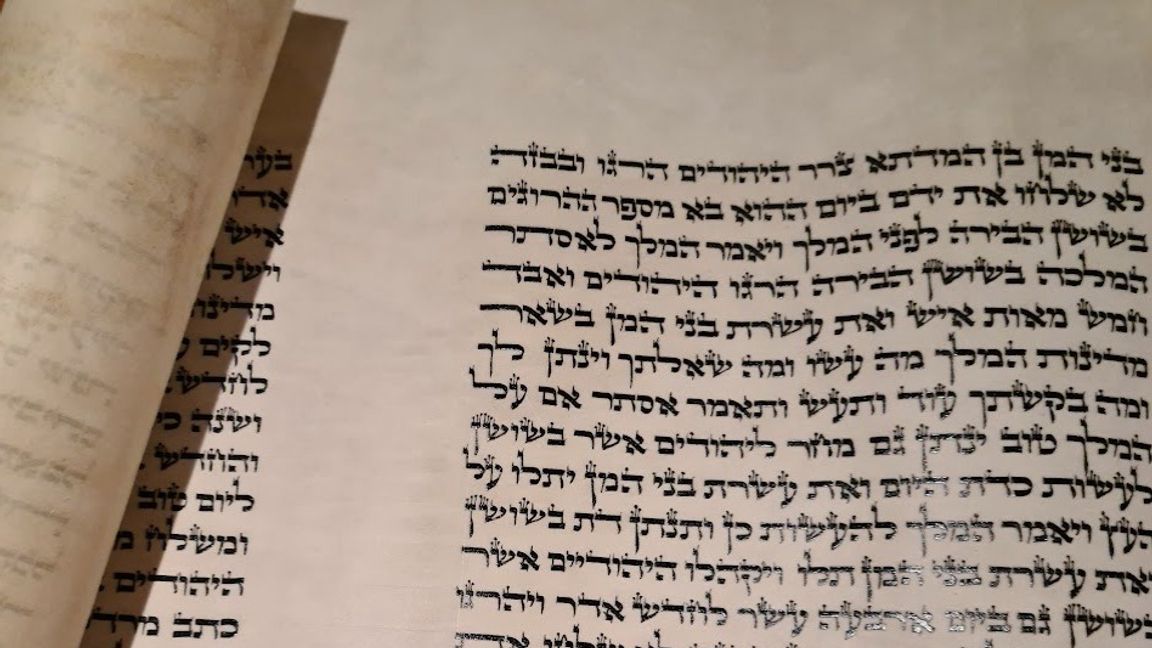 בני המן בן המדתא צרר היהודים הרגו ובבזה
לא שלחו את ידם ביום ההוא בא מספר ההרוגים
בשושן הבירה לפני המלך ויאמר המלך לאסתר
המלכה בשושן הבירה הרגו היהודים ואבד
חמש מאות איש ואת עשרת בני המן בשאר
מדינות המלך מה עשו ומה שאלתך וינתן לך
ומה בקשתך עוד ותעש ותאמר אסתר אם על
המלך טוב ינתן גם מחר ליהודים אשר בשושן
לעשות כדת היום ואת עשרת בני המן יתלו על
העץ ויאמר המלך להעשות כן ותנתן דת בשושן
ואת עשרת בני המן תלו ויקהלו היהודיים אשר
בשושן גם ביום ארבעה עשר לחדש אדר ויהרגו
איש
מדינות
לקים
לחדש
ושנה
והחדש
ליום טוב
ומשלח
היהודים
כתב